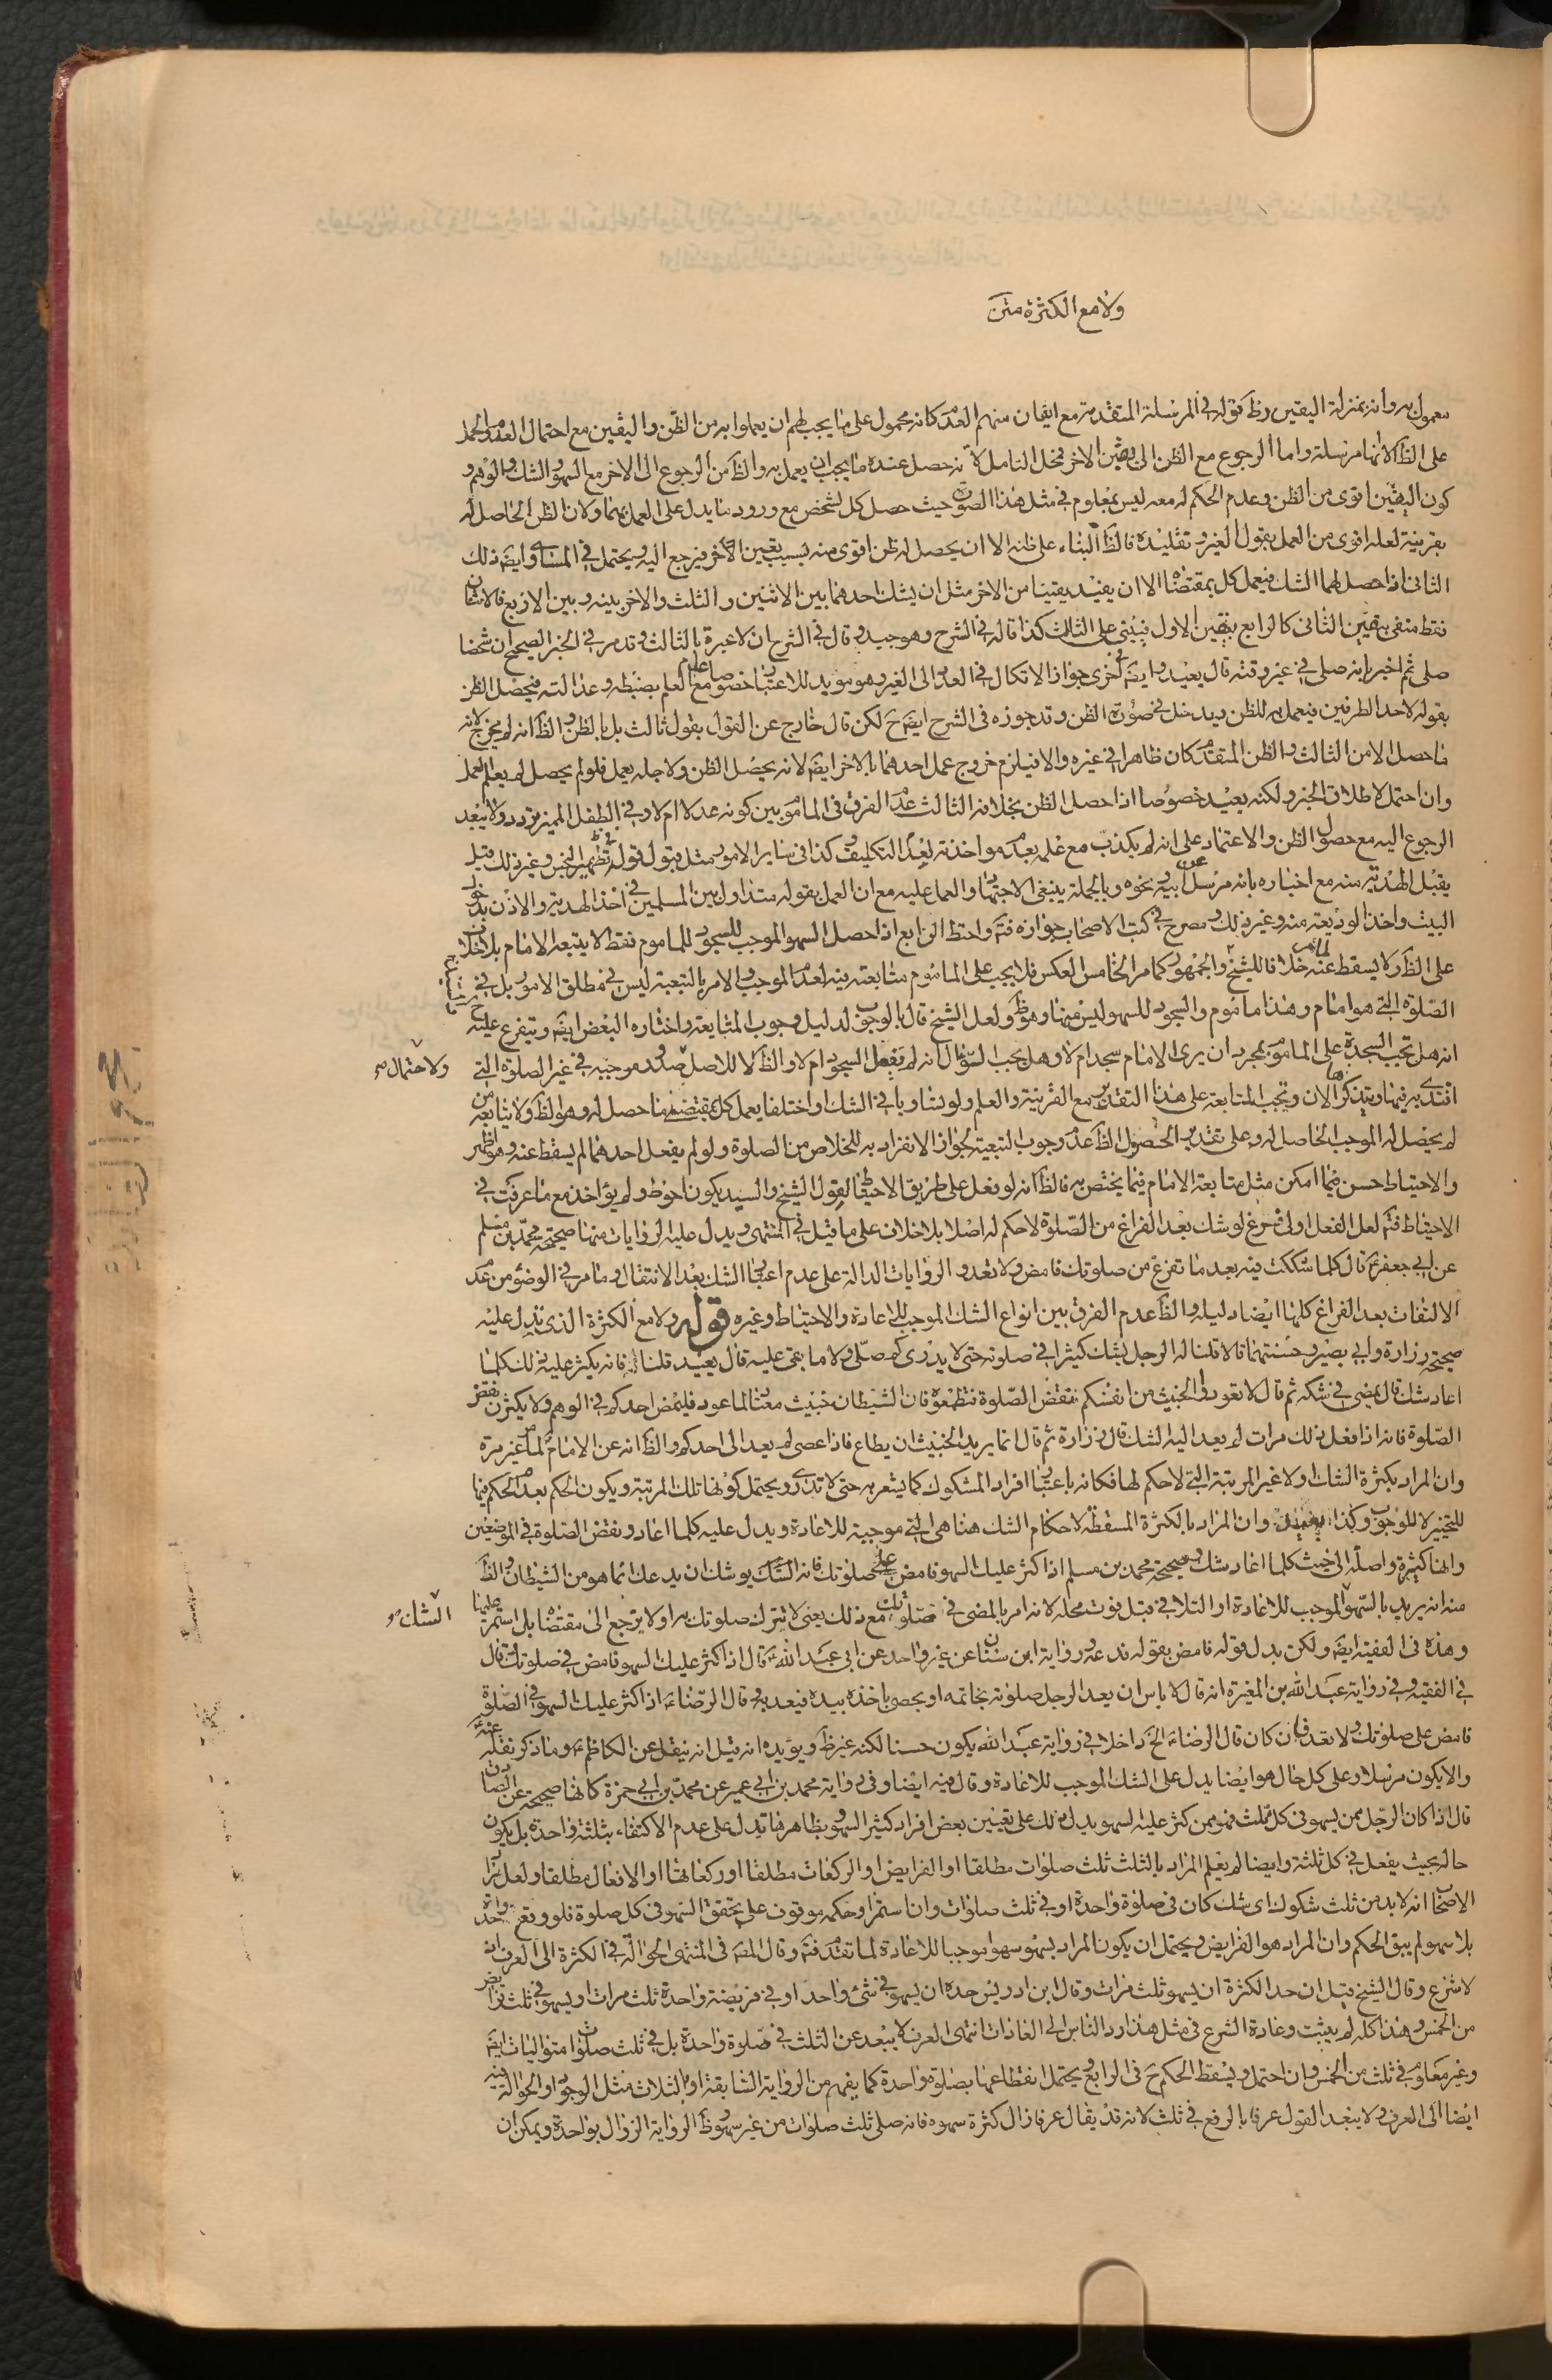 ولا مع الكثرة متن
معمول به وانه بمنزلة اليقين وظ قوله في المرسلة المتقدمة مع ايقان منهم العدم كانه محمول على ما يجب لهم ان يعملوا به من الظن واليقين مع احتمال العدم والحمل
على الظ لانها مرسلة واما الرجوع مع الظن الى يقين الاخر فمحل التامل لانه حصل عنده ما يجب ان يعمل به والظ من الرجوع الى الاخر مع السهو الشك والوهم و
كون اليقين اقوى من الظن وعدم الحكم له معه ليس بمعلوم في مثل هذا الصورة حيث حصل كل لشخص مع ورود ما يدل على العمل بهما ولان الظن الحاصل له
بقرينة لعله اقوى من العمل بقول الغير وتقليده فالظ البناء على ظنه الا ان يحصل له ظن اقوى منه بسبب يقين الاخر فيرجع اليه ويحتمل في المساوى ايضا ذلك
الثانى اذا حصل لهما الشك فيعمل كل بمقتضاه الا ان يفيد يقينا من الاخر مثل ان يشك احدهما بين الاثنين والثلث والاخر بينه وبين الاربع فالاثنان
فقط منفى بيقين الثانى كالرابع بيقين الاول فيبنى على الثالث كذا قاله في الشرح وهو جيد وقال في الشرح ان لا عبرة بالثالث وقد مر في الخبر الصحيح ان شخصا
صلى ثم اخبر بانه صلى في غير وقته قال يعيد وايضا في اخرى جواز الاتكال في العدد الى الغير وهو مؤيد للاعتبار خصوصا مع العلم بضبطه وعدالته فيحصل الظن
بقوله لاحد الطرفين فيعمل به للظن ويدخل في صورة الظن وقد جوزه في الشرح ايضا ح لكن قال خارج عن القول بقول ثالث بل بالظن والظ انه لم يخرج لانه
ما حصل الا من الثالث والظن المتقدم كان ظاهرا في غيره والا فيلزم خروج عمل احدهما بالاخر ايضا لانه يحصل الظن ولاجله يعمل فلو لم يحصل لم يعلم العمل
وان احتمل لاطلاق الخبر ولكنه بعيد خصوصا اذا حصل الظن بخلافه الثالث عدم الفرق في الماموم بين كونه عدلا ام لا وفي الطفل المميز تردد ولا يبعد
الرجوع اليه مع حصول الظن والاعتماد على انه لم يكذب مع علمه بعدم مواخذته لعدم التكليف وكذا في ساير الامور مثل قبول قوله في تطهير النجس وغير ذلك قيل
يقبل الهدية منه مع اخباره بانه مرسل عن ابيه ونحوه وبالجملة ينبغى الاجتهاد والعمل عليه مع ان العمل بقوله متداول بين المسلمين في اخذ الهدية والاذن بدخول
البيت واخذ الوديعة منه وغير ذلك ومصرح في كتب الاصحاب جوازه فتم واحتط الرابع اذا حصل السهو الموجب للسجود للماموم فقط لا يتبعه الامام بلا خلاف
على الظ ولا يسقط عنه خلافا للشيخ والجمهور كما مر الخامس العكس فلا يجب على الماموم متابعته فيه لعدم الموجب والامر بالتبعية ليس في مطلق الامور بل في
الصلوة التي هو امام وهذا ماموم والسجود للسهو ليس منها وهو ظ ولعل الشيخ قال بالوجوب لدليل وجوب المتابعة واختاره البعض ايضا ويتفرع عليه
انه هل تجب السجدة على الماموم بمجرد ان يرى الامام سجد ام لا وهل يجب السؤال انه لم يفعل السجود ام لا والظ لا للاصل وصدور موجبه في غير الصلوة التي
ولاحتمال صح
اقتدى به فيها ويتذكرها الان وتجب المتابعة على هذا التقدير مع القرينة والعلم ولو تساويا في الشك واختلفا يعمل كل بمقتضى ما حصل له وهو الظ ولا يتابع من
لم يحصل له الموجب الحاصل له وعلى تقدير الحصول الظ عدم وجوب التبعية لجواز الانفراد به للخلاص من الصلوة ولو لم يفعل احدهما لم يسقط عنه وهو اظهر
والاحتياط حسن فيما امكن مثل متابعة الامام فيما يختص به فالظ انه لو فعل على طريق الاحتياط لقول الشيخ والسيد يكون احوط ولم يؤاخذ مع ما عرفت في
الاحتياط فتم لعل الفعل اولى فرع لو شك بعد الفراغ من الصلوة لا حكم له اصلا بلا خلاف على ما قيل في المنتهى ويدل عليه الروايات منها صحيحة محمد بن مسلم
عن ابي جعفر ع قال كلما شككت فيه بعد ما تفرغ من صلوتك فامض ولا تعد والروايات الدالة على عدم اعتبار الشك بعد الانتقال وما مر في الوضوء من عدم
الالتفات بعد الفراغ كلها ايضا دليله والظ عدم الفرق بين انواع الشك الموجب للاعادة والاحتياط وغيره قوله ولا مع الكثرة الذى يدل عليه
صحيحة زرارة وابي بصير وحسنتهما قالا قلنا له الرجل يشك كثيرا في صلوته حتى لا يدرى كم صلى ولا ما بقى عليه قال يعيد قلنا فانه يكثر عليه ذلك كلما
اعاد شك قال يمضى في شكه ثم قال لا تعودوا الخبيث من انفسكم بنقض الصلوة فتطمعوه فان الشيطان خبيث معتاد لما عود فليمض احدكم في الوهم ولا يكثرن نقض
الصلوة فانه اذا فعل ذلك مرات لم يعد اليه الشك قال زرارة ثم قال انما يريد الخبيث ان يطاع فاذا عصى لم يعد الى احدكم والظ انه عن الامام لما مر غير مرة
وان المراد بكثرة الشك اولا غير المرتبة التي لا حكم لها فكانه باعتبار افراد المشكوك كما يشعر به حتى لا تدرى ويحتمل كونها تلك المرتبة ويكون الحكم بعدم الحكم فيها
للتخيير لا للوجوب وكذا وان المراد بالكثرة المسقطة لاحكام الشك هنا هى التي موجبة للاعادة ويدل عليه كلما اعاد ونقض الصلوة في الموضعين
وانها كثيرة واصلة الى حيث كلما اعاد شك وصحيحة محمد بن مسلم اذا كثر عليك السهو فامض على صلوتك فانه الشك يوشك ان يدعك انما هو من الشيطان والظ
منه انه يريد بالسهو الموجب للاعادة او التلافى قبل فوت محله لانه امر بالمضى في صلوتك مع ذلك يعنى لا تترك صلوتك به ولا يرجع الى مقتضاه بل استمر عليها
الشك صح
وهذه في الفقيه ايضا ولكن بدل قوله فامض بقوله فدعه ورواية ابن سنان عن غير واحد عن ابي عبد الله ع قال اذا كثر عليك السهو فامض في صلوتك وقال
في الفقيه وفي رواية عبد الله بن المغيرة انه قال لا باس ان يعد الرجل صلوته بخاتمه او بحصى ياخذه بيده فيعد به وقال الرضا ع اذا كثر عليك السهو في الصلوة
فامض على صلوتك ولا تعد فان كان قال الرضا ع الخ داخلا في رواية عبد الله يكون حسنا لكنه غير ظ ويؤيده انه قيل انه ينقل عن الكاظم ع وما ذكر نقله عنه
والا يكون مرسلا وعلى كل حال هو ايضا يدل على الشك الموجب للاعادة وقال فيه ايضا وفى رواية محمد بن ابي عمير عن محمد بن ابي حمزة كانها صحيحة عن الصادق
قال اذا كان الرجل ممن يسهو في كل ثلث فهو ممن كثر عليه السهو يدل ذلك على تعيين بعض افراد كثير السهو وبظاهرها تدل على عدم الاكتفاء بثلثة واحدة بل يكون
حاله بحيث يفعل في كل ثلثة وايضا لم يعلم المراد بالثلث ثلث صلوات مطلقا او الفرايض او الركعات مطلقا او ركعاتها او الافعال مطلقا ولعل مراد
الاصحاب انه لا بد من ثلث شكوك اى شك كان في صلوة واحدة او في ثلث صلوات وان استمراره حكمه موقوف على تحقق السهو في كل صلوة فلو وقع واحدة
بلا سهو لم يبق الحكم وان المراد هو الفرايض ويحتمل ان يكون المراد بسهو سهوا موجبا للاعادة لما تقدم فتم وقال المص في المنتهى الحوالة في الكثرة الى العرف اذ
لا شرع وقال الشيخ قيل ان حد الكثرة ان يسهو ثلث مرات وقال ابن ادريس حده ان يسهو في شئ واحد او في فريضة واحدة ثلث مرات او يسهو في ثلث فرايض
من الخمس وهذا كله لم يثبت وعادة الشرع في مثل هذا رد الناس الى العادات انتهى العرف لا يبعد عن الثلث في صلوة واحدة بل في ثلث صلوات متواليات ايضا
وغير معلوم في ثلث من الخمس وان احتمل ويسقط الحكم ح في الرابع ويحتمل انقطاعها بصلوة واحدة كما يفهم من الرواية السابقة او بالثلاث مثل الوجود والحوالة فيه
ايضا الى العرف ولا يبعد القول عرفا بالرفع في ثلث لانه قد يقال عرفا زال كثرة سهوه فانه صلى ثلث صلوات من غير سهو وظ الرواية الزوال بواحدة ويمكن ان